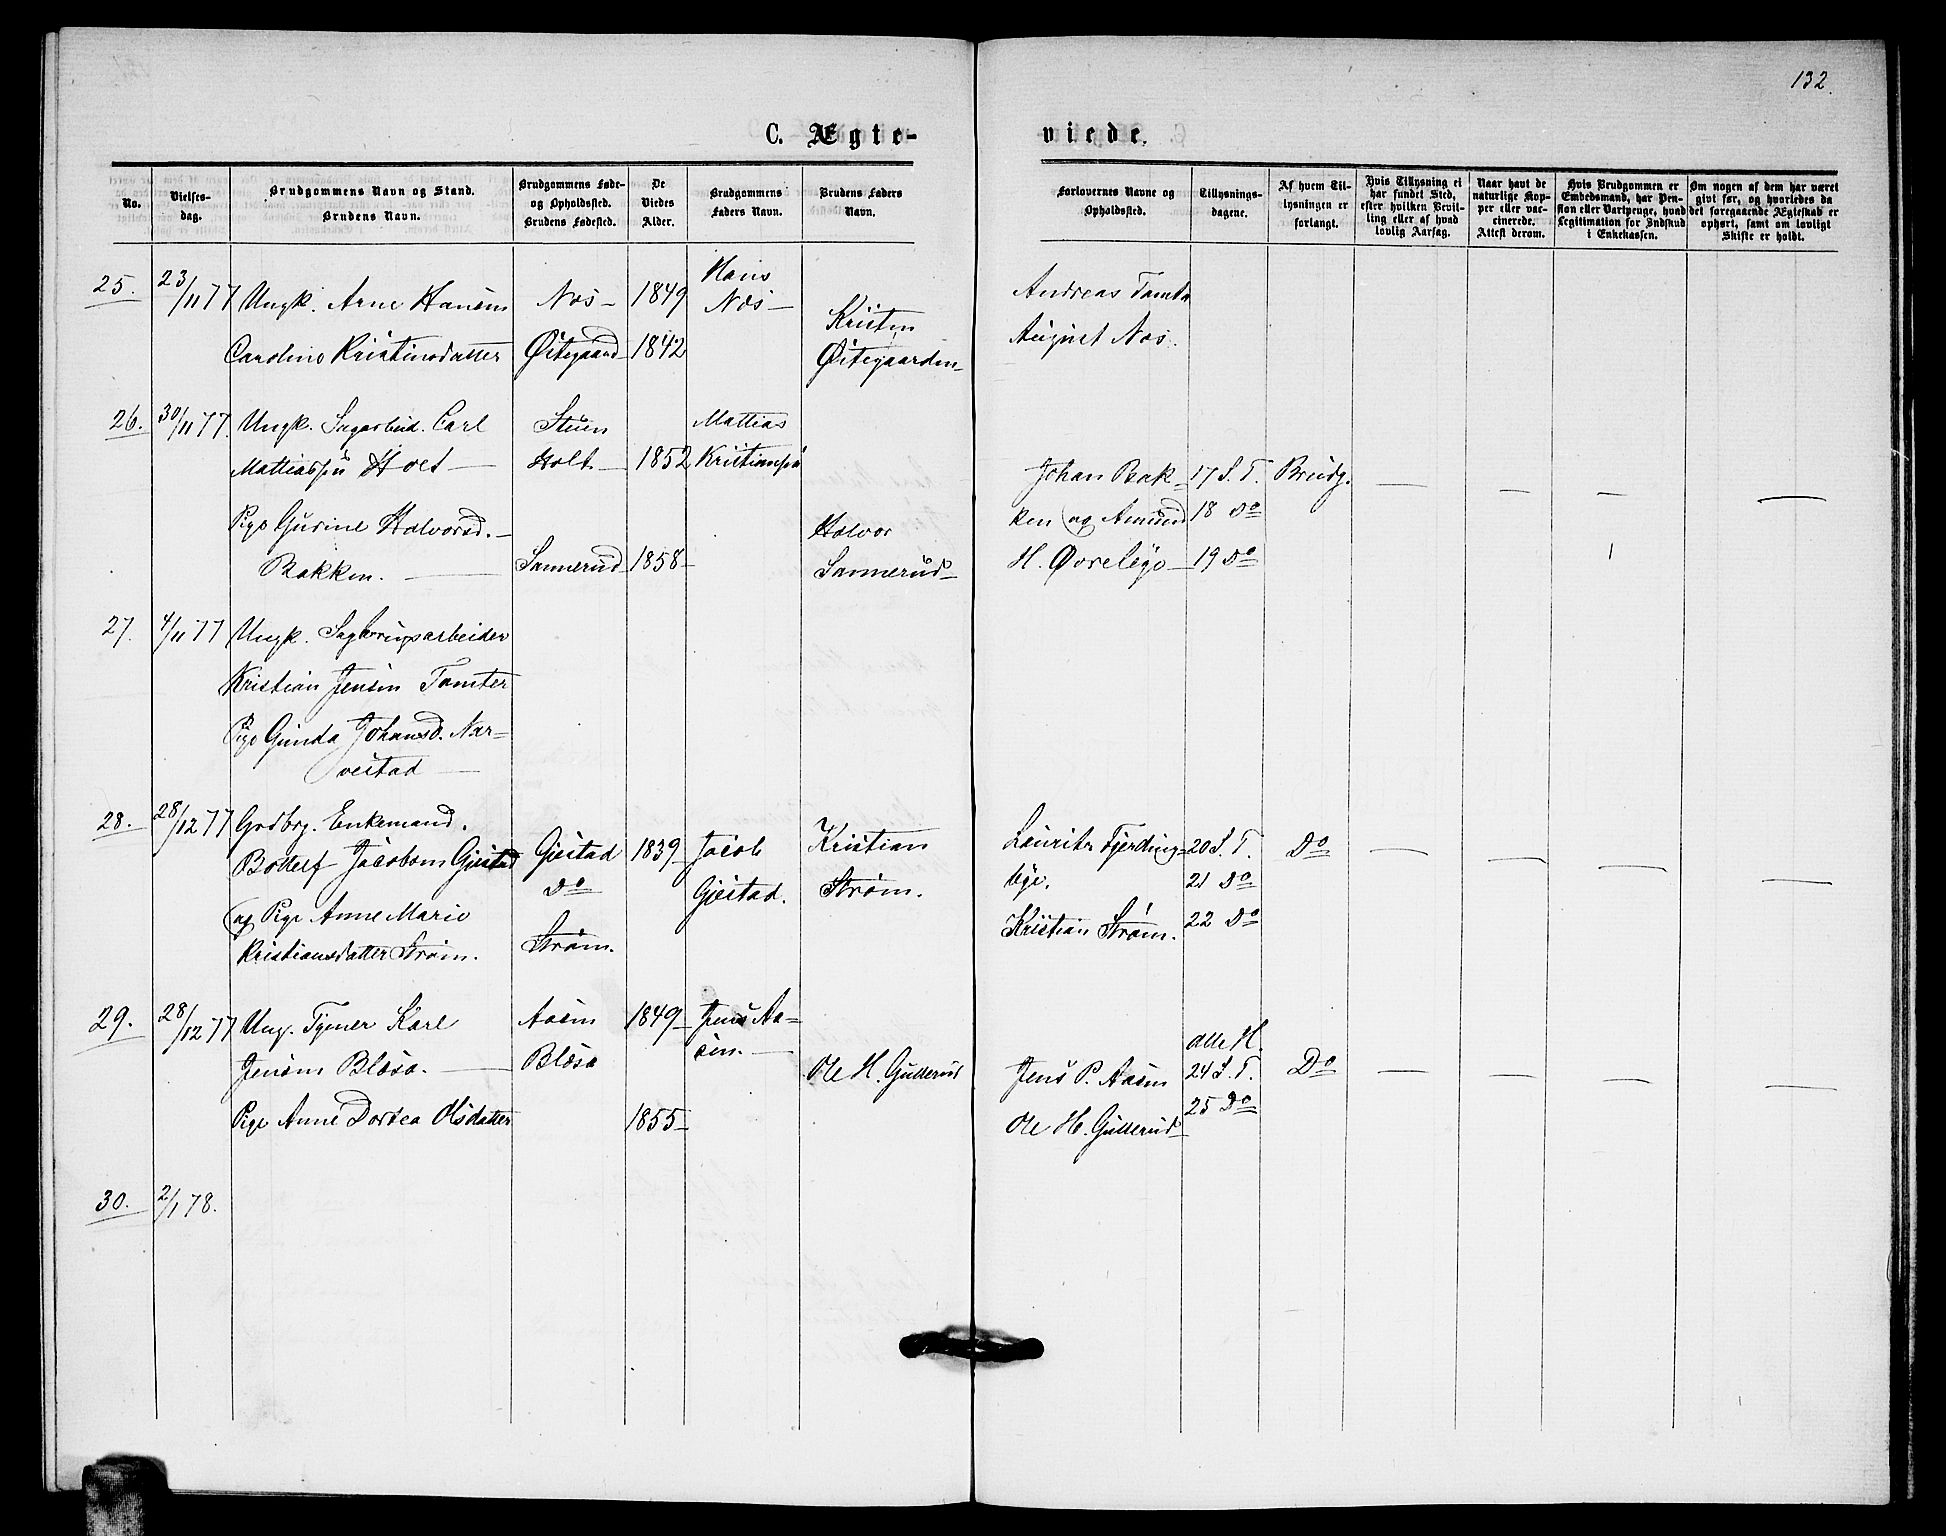 132.
C. Ægte-
viede.
No.
Vielses-
dag.
Brudgommens Navn og Stand.
Brudens Navn.
Brudgommens Føde-
og Opholdssted.
Brudens Fødested.
De
Viedes
Alder.
Brudgommens
Faders Navn.
Brudens Faders
Navn.
Forlovernes Navne og
Opholdssted.
Tillysnings-
dagene.
Af hvem Til-
lysningen er
forlangt.
Hvis Tillysning ei
har fundet Sted,
efter hvilken Bevil-
ling eller af hvad
lovlig Aarsag.
Naar havt de
naturlige Kop-
per eller vac-
cinerede.
Attest derom.
Hvis Brudgommen er
Embedsmand, har Pen-
sion eller Vartpenge, hvad
Legitimation for Indskud
i Enkekassen.
Om nogen af dem har været
givt før, og hvorledes da
det foregaaende Ægteskab er
ophørt, samt om lovligt
Skifte er holdt.
25. 23/11 77 Ungk. Arne Hansen Næs- 1849 Hans
Næs- Andreas Tomta
Caroline Kristinsdatter 1842 Kristen
August Næs.
26. 30/11 77. Ungk. Carl Stuen Mattias
Mattiassen Holt - 1852 Kristiansen Johan Bak- 17 S. T. Brudg. - - - -
Pige Gurine Halvorsd.- Halvor ken og Amund 18 Do
Bakken. Sannerud 1858- Sannerud- H. 19 Do
27. 4/11 77 Ungk. Sagbrugsarbeider
Kristian Jensen Tomter
Pige Gunda Johansd. Nar-
vestad
28. 28/12 77 Grdbrg. Enkemand.
Jacobsen Gjestad Gjestad 1839- Jacob Kristian Laurits Fjerding- 20 S. T. Do - - - -
Do Gjestad. Strøm. bye. 21 Do
og Pige Anne Marie Kristian Strøm. 22 Do
Kristiansdatter Strøm. Strøm.
29. 28/12 77 Ung. Karl Aasen 1849- Jens Aa- alle H.
Jensen Blæsa. Blæsa sen. Ole H. Gullerud Jens P. Aasen 24 S. T. Do - - - -
Pige Anne Dortea Olsdatter 1855- Ole H. Gullerud 25 Do
30. 2/1 78.